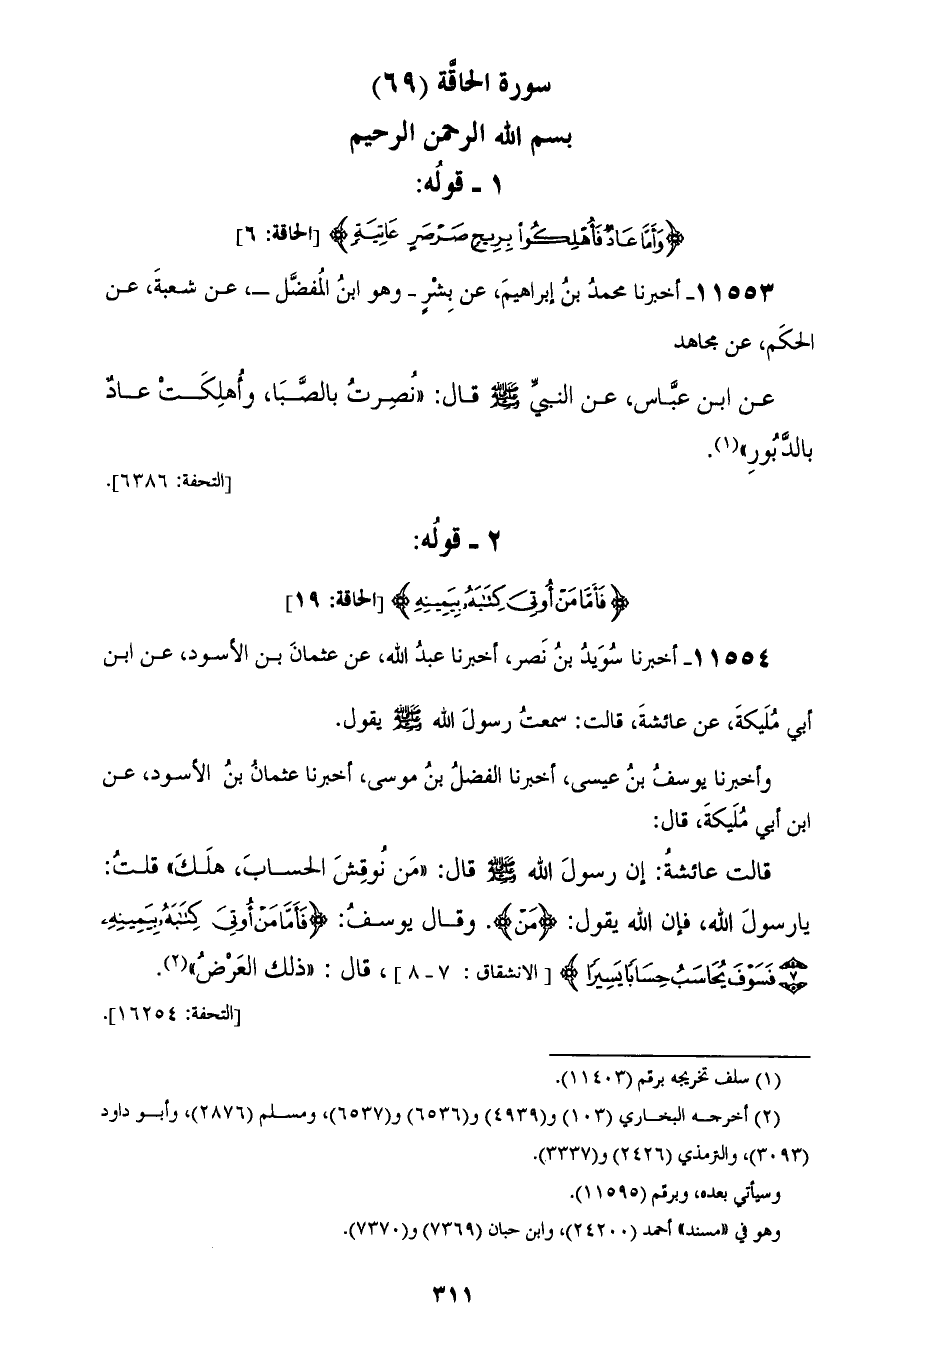 سورة الحاقَّة (٦٩)
بسم الله الرحمن الرحيم
١ - قولُه:
﴿وَأَمَّا عَادٌ فَأُهْلِكُوا۟ بِرِيحٍ صَرْصَرٍ عَاتِيَةٍ﴾ [الحاقة: ٦]
١١٥٥٣- أخبرنا محمدُ بنُ إبراهيمَ، عن بِشْرٍ - وهو ابنُ المُفضَّل -، عن شعبةَ، عن
الحكَم، عن مجاهد
عن ابن عبَّاس، عن النبيِّ ﷺ قال: «نُصِرتُ بالصَّبَا، وأُهلِكَتْ عادٌ
بالدَّبُورِ»(١).
[التحفة: ٦٣٨٦].
٢ - قولُه:
﴿فَأَمَّا مَنْ أُوتِىَ كِتَٰبَهُۥ بِيَمِينِهِۦ﴾ [الحاقة: ١٩]
١١٥٥٤- أخبرنا سُوَيدُ بنُ نَصر، أخبرنا عبدُ الله، عن عثمانَ بن الأسود، عن ابن
أبي مُلَيكةَ، عن عائشةَ، قالت: سمعتُ رسولَ الله ﷺ يقول.
وأخبرنا يوسفُ بنُ عيسى، أخبرنا الفضلُ بنُ موسى، أخبرنا عثمانُ بنُ الأسود، عن
ابن أبي مُلَيكةَ، قال:
قالت عائشةُ: إن رسولَ الله ﷺ قال: «مَن نُوقِشَ الحسابَ، هلَكَ» قلتُ:
يارسولَ الله، فإن الله يقول: ﴿مَنْ﴾. وقال يوسفُ: ﴿فَأَمَّا مَنْ أُوتِىَ كِتَٰبَهُۥ بِيَمِينِهِۦ
٧ فَسَوْفَ يُحَاسَبُ حِسَابًا يَسِيرًا﴾ [الانشقاق: ٧-٨]، قال: «ذلك العَرْضُ»(٢).
[التحفة: ١٦٢٥٤].
(١) سلف تخريجه برقم (١١٤٠٣).
(٢) أخرجه البخاري (١٠٣) و(٤٩٣٩) و(٦٥٣٦) و(٦٥٣٧)، ومسلم (٢٨٧٦)، وأبو داود
(٣٠٩٣)، والترمذي (٢٤٢٦) و(٣٣٣٧).
وسيأتي بعده، وبرقم (١١٥٩٥).
وهو في «مسند» أحمد (٢٤٢٠٠)، وابن حبان (٧٣٦٩) و(٧٣٧٠).
٣١١